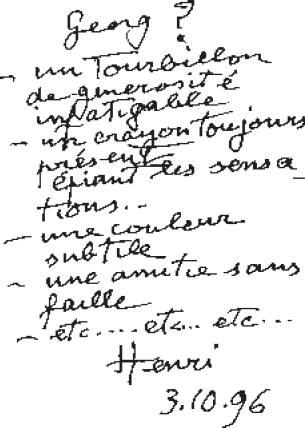 Georg ?
- un Tourbillon
de generosité
infatigable
- un crayon toujours
présent
épiant les sensa
tions..
- une couleur
subtile
- une amitie sans
faille
- etc.... etc.. etc...
Henri
3.10.96